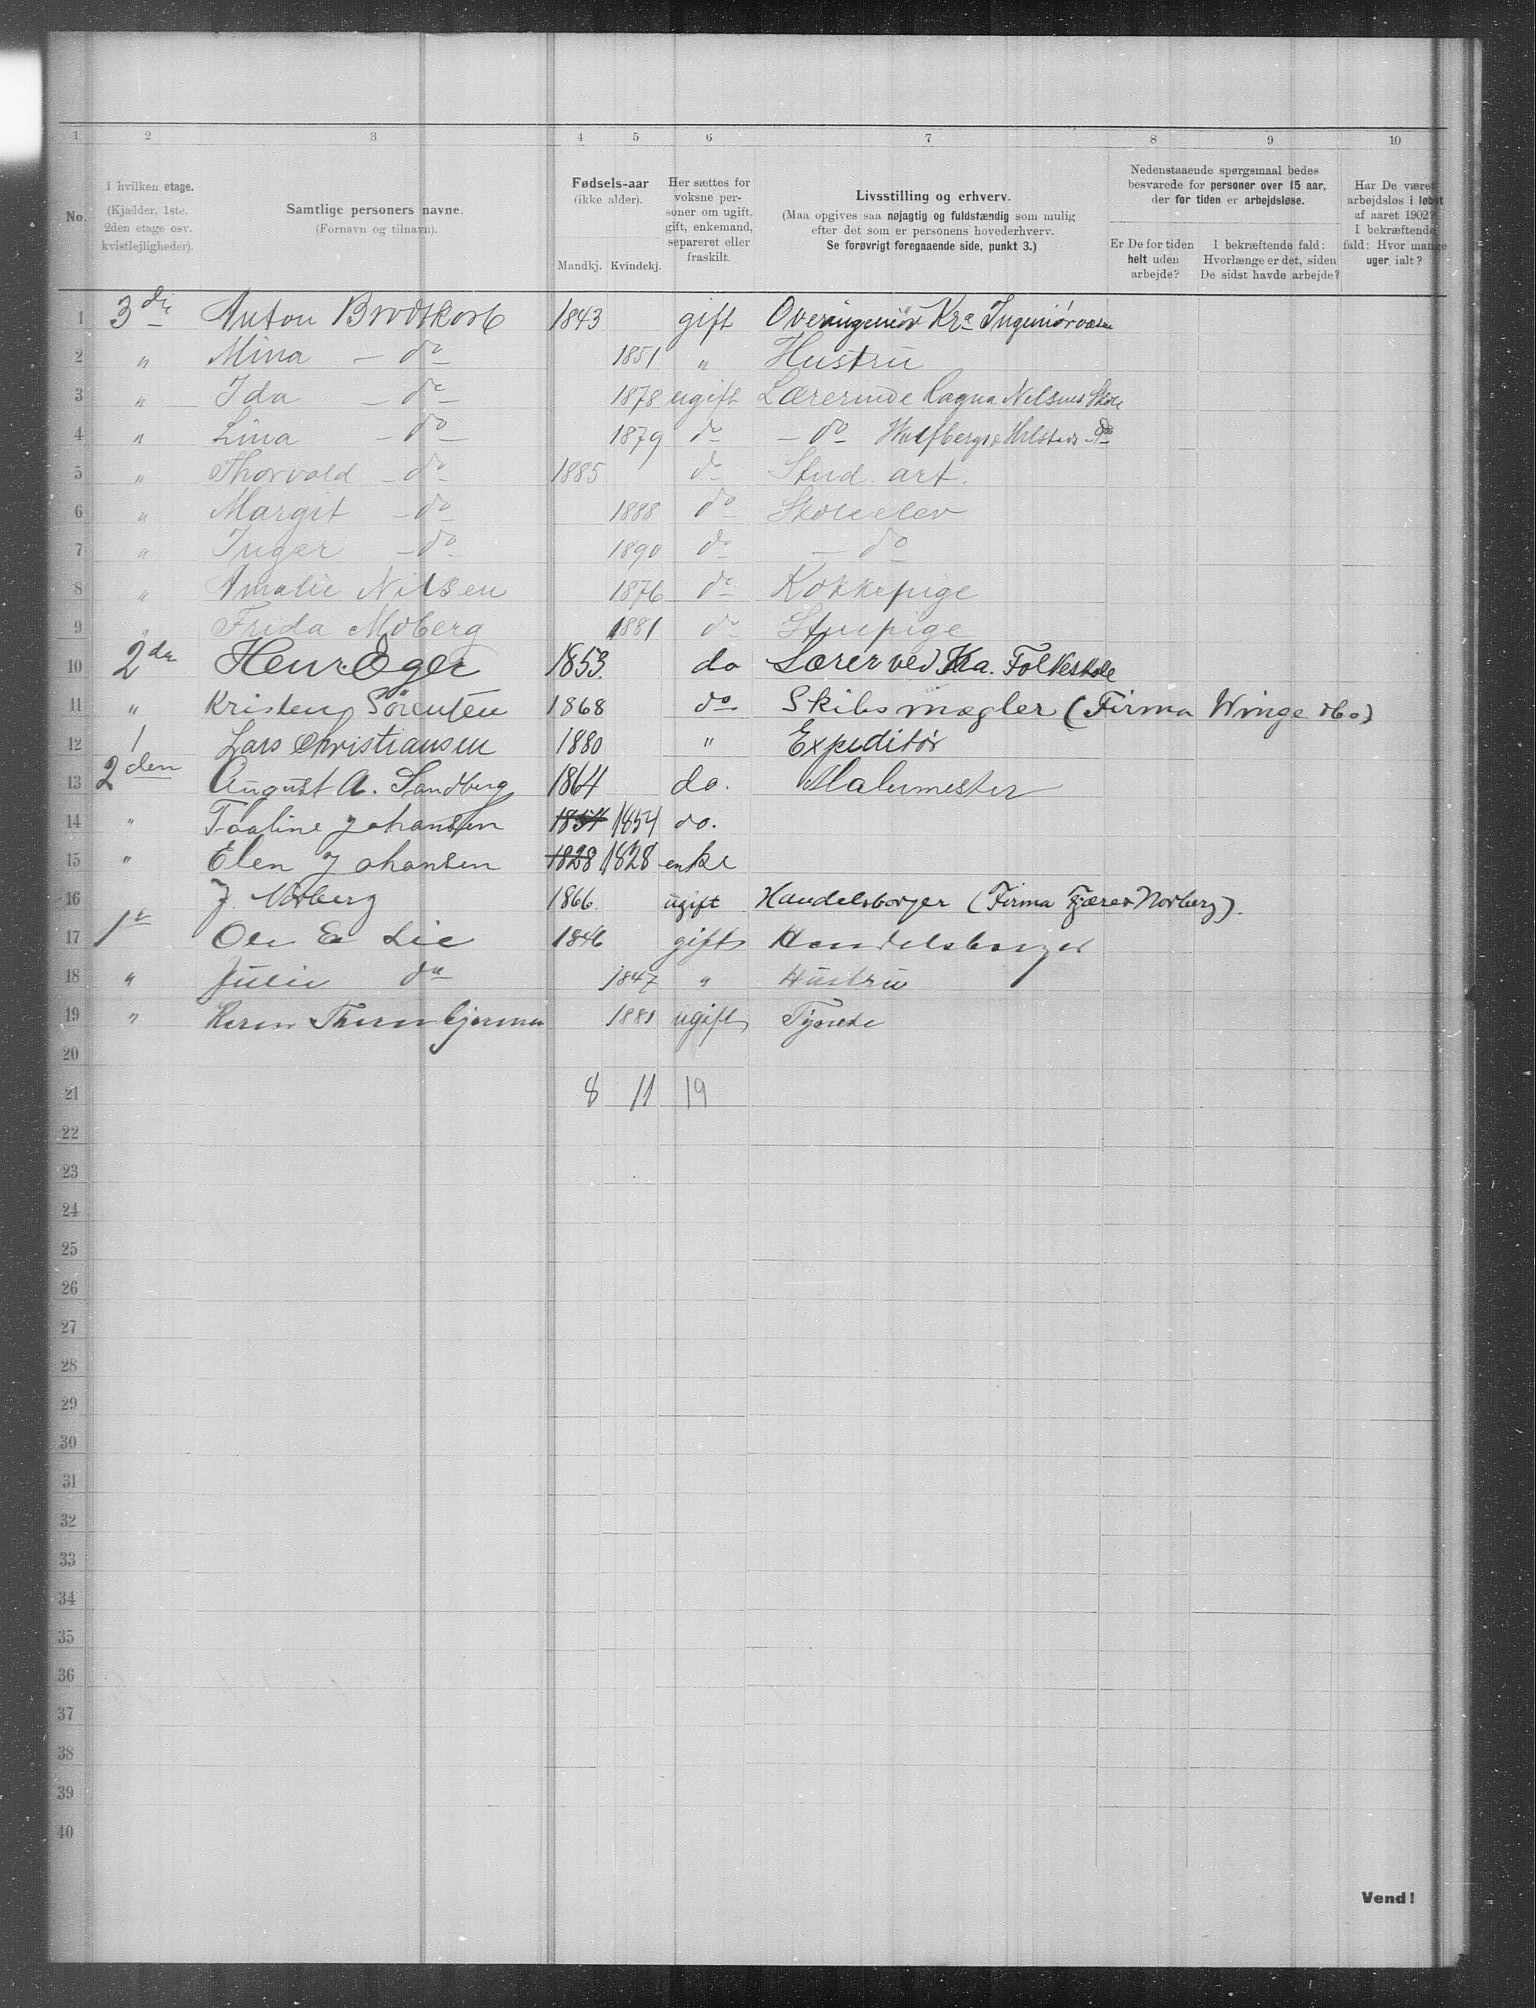 1 2 3 4 5 6 7 8 9 10
No.
I hvilken etage.
(Kjælder, 1ste,
2den etage osv.
kvistlejligheder).
Samtlige personers navne.
(Fornavn og tilnavn).
Fødsels-aar
(ikke alder).
Mandkj. Kvindekj.
Her sættes for
voksne per-
soner om ugift,
gift, enkemand,
separeret eller
fraskilt.
Livsstilling og erhverv.
(Maa opgives saa nøjagtig og fuldstændig som mulig
efter det som er personens hovederhverv.
Se forøvrigt foregaaende side, punkt 3.)
Nedenstaaende spørgsmaal bedes
besvarede for personer over 15 aar,
der for tiden er arbejdsløse.
Er De for tiden
helt uden
arbejde?
I bekræftende fald:
Hvorlænge er det, siden
De sidst havde arbejde?
Har De været
arbejdsløs i løbet
af aaret 1902?
I bekræftende
fald: Hvor mange
uger ialt?
1 3die Anton Brodtkorb 1843 gift Overingeniør Kra Ingeniørvæsen
2 " Mina - do 1851 " Hustru
3 " Ida - do 1878 ugift Lærerinde Ragna Nilsens Skole
4 " Lina - do 1879 do - do
5 " Thorvald - do 1885 do Stud. art.
6 " Margit - do 1888 do Skoleelev
7 " Inger - do 1890 do - do
8 " Amalie Nilsen 1876 do Kokkepige
9 " Frida Moberg 1881 do Stuepige
10 2den Henr. Eger 1853. do Lærer ved Kra. Folkeskole
11 " Kristen Sörensen 1868 do Skibsmægler (Firma Winge & Co)
12 1 Lars Christiansen 1880 " Expeditør
13 2den August A. Sandberg 1864 do. Malermester
14 " Johansen 1854 1854 do.
15 " Elen Johansen 1828 1828 enke
16 J. Norberg 1866. ugift Handelsborger (Firma Norberg).
17 1e Ole E Lie 1846 gift Handelsborger
18 " Julie do 1847 " Hustru
19 " 1881 ugift Tjeneste
20
21 8 11 19
22
23
24
25
26
27
28
29
30
31
32
33
34
35
36
37
38
39
40
Vend!